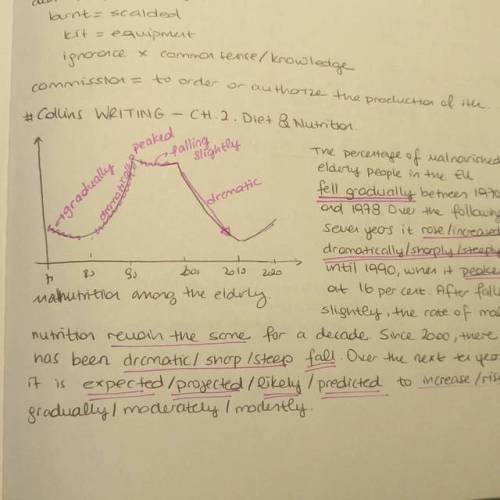 burnt = scalded
kit = equipment
ignorance x common sense / knowledge
commission = to order or authorize the production of
# Collins WRITING - CH.2. Diet & Nutrition
gradually
dramatically
peaked
falling slightly
dramatic
80
90
2000
2010
2020
malnutrition among the elderly
The percentage of malnourished
elderly people in the EU
fell gradually between 1970
and 1978. Over the following
seven years it rose/increased
dramatically/sharply/steeply
until 1990, when it peaked
at 16 per cent. After fall
slightly, the rate of mal
nutrition remain the same for a decade. Since 2000, there
has been dramatic/sharp/steep fall. Over the next ten year
it is expected/projected/likely/predicted to increase/ris
gradually/moderately/modestly.